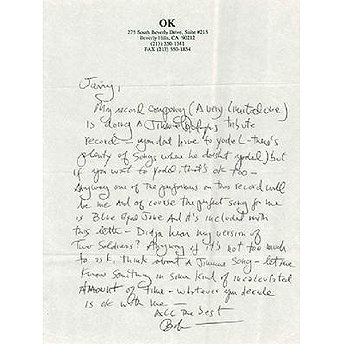 OK
275 South Beverly Drive, Suite #215
Beverly Hills, CA 90212
(213) 550-1341
FAX (213) 550-1854
Jerry,
My record company (A very limited one)
is doing A Jimmie Rodgers tribute
record – you dont have to yodel – theres
plenty of songs where he doesnt yodel) but
if you wish to yodel, that's ok too –
Anyway one of the performers on this record will
be me And of course the perfect song for me
is Blue Eyed Jane And it's included with
this letter – Didja hear my version of
Two Soldiers? Anyway if it's not too much
to ask, think about a Jimmie song – let me
know something in some kind of calculated
AMOUNT of time – whatever you decide
is ok with me –
ALL the best
Bob